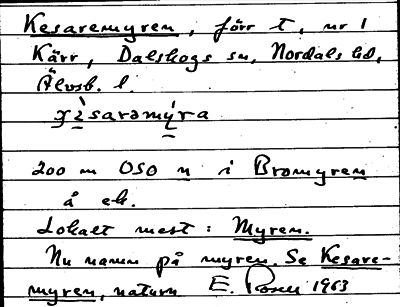 Kesaremyren, förr t, nr 1
Kärr, Dalskogs sn, Nordals hd,
Älvsb. l.
xi̇̀saramýra
200 m OSO n i Bromyren
å ek.
Lokalt mest: Myren.
Nu namn på myren. Se Kesare-
myren, naturn E. Rosell 1963